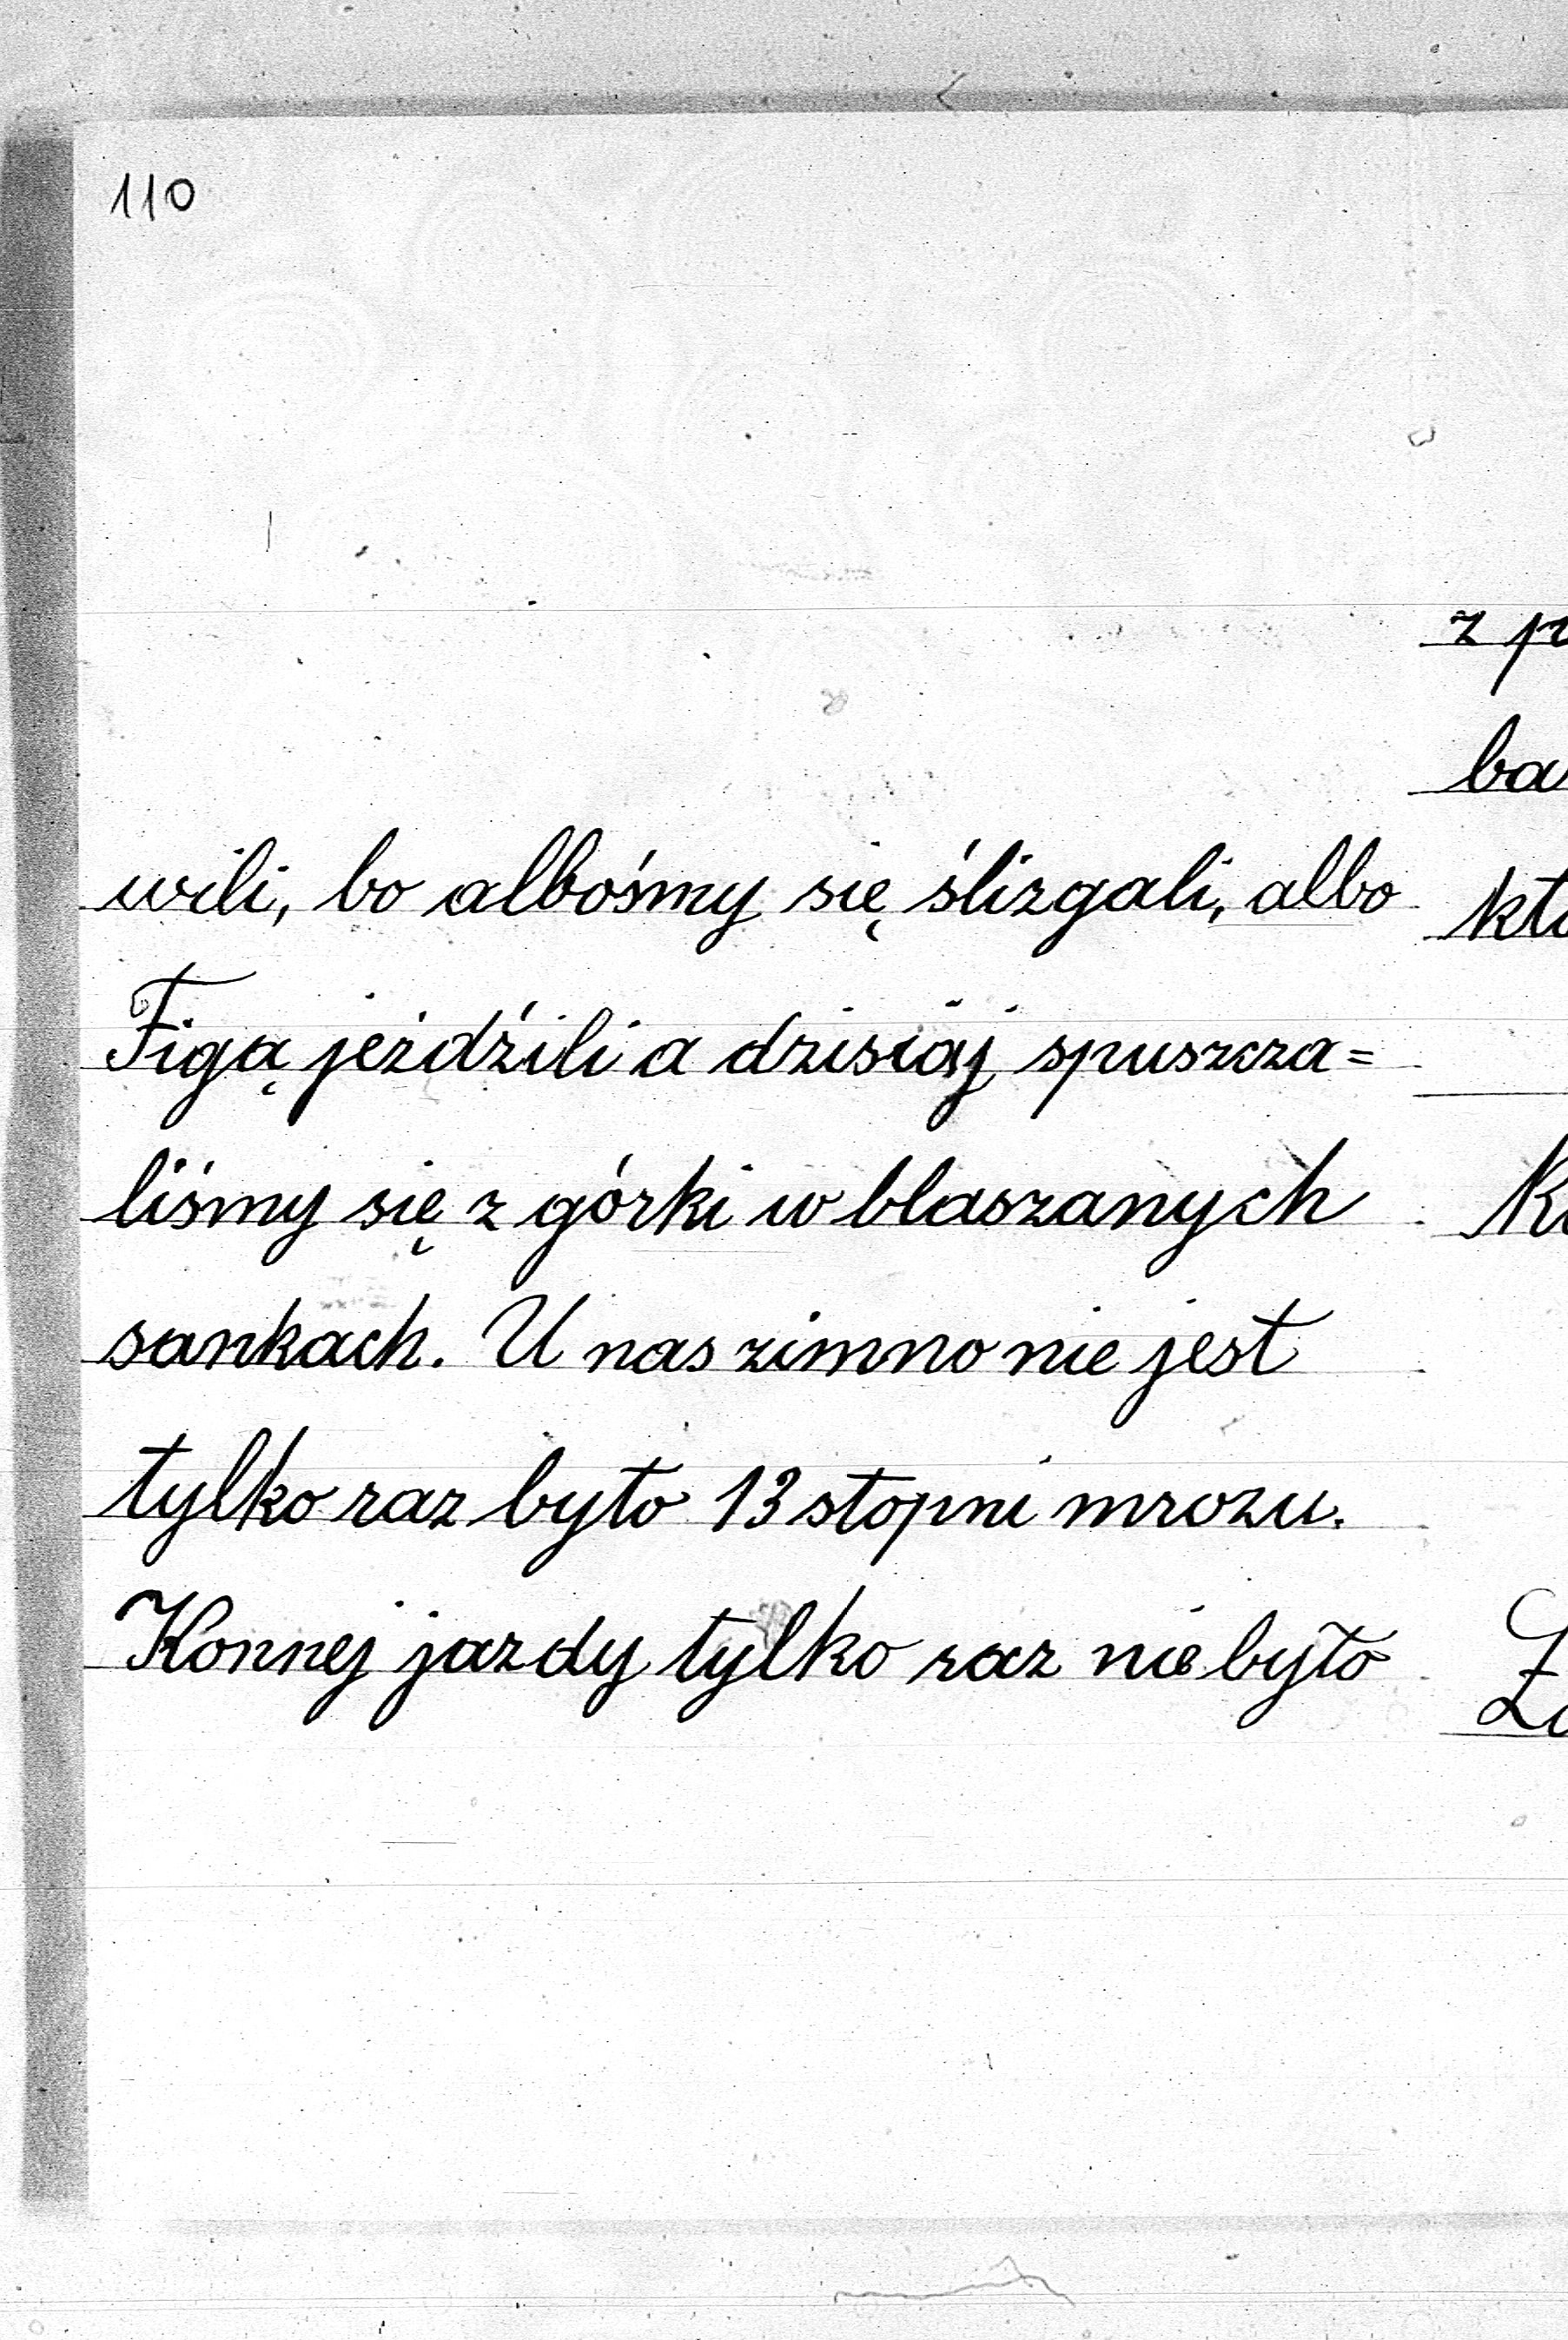 110
wili, bo albośmy się ślizgali, albo
Figą jeździli a dzisiaj spuszcza=
liśmy się z górki w blaszanych
sankach. U nas zimno nie jest
tylko raz było 13 stopni mrozu.
Konnej jazdy tylko raz nie było
z